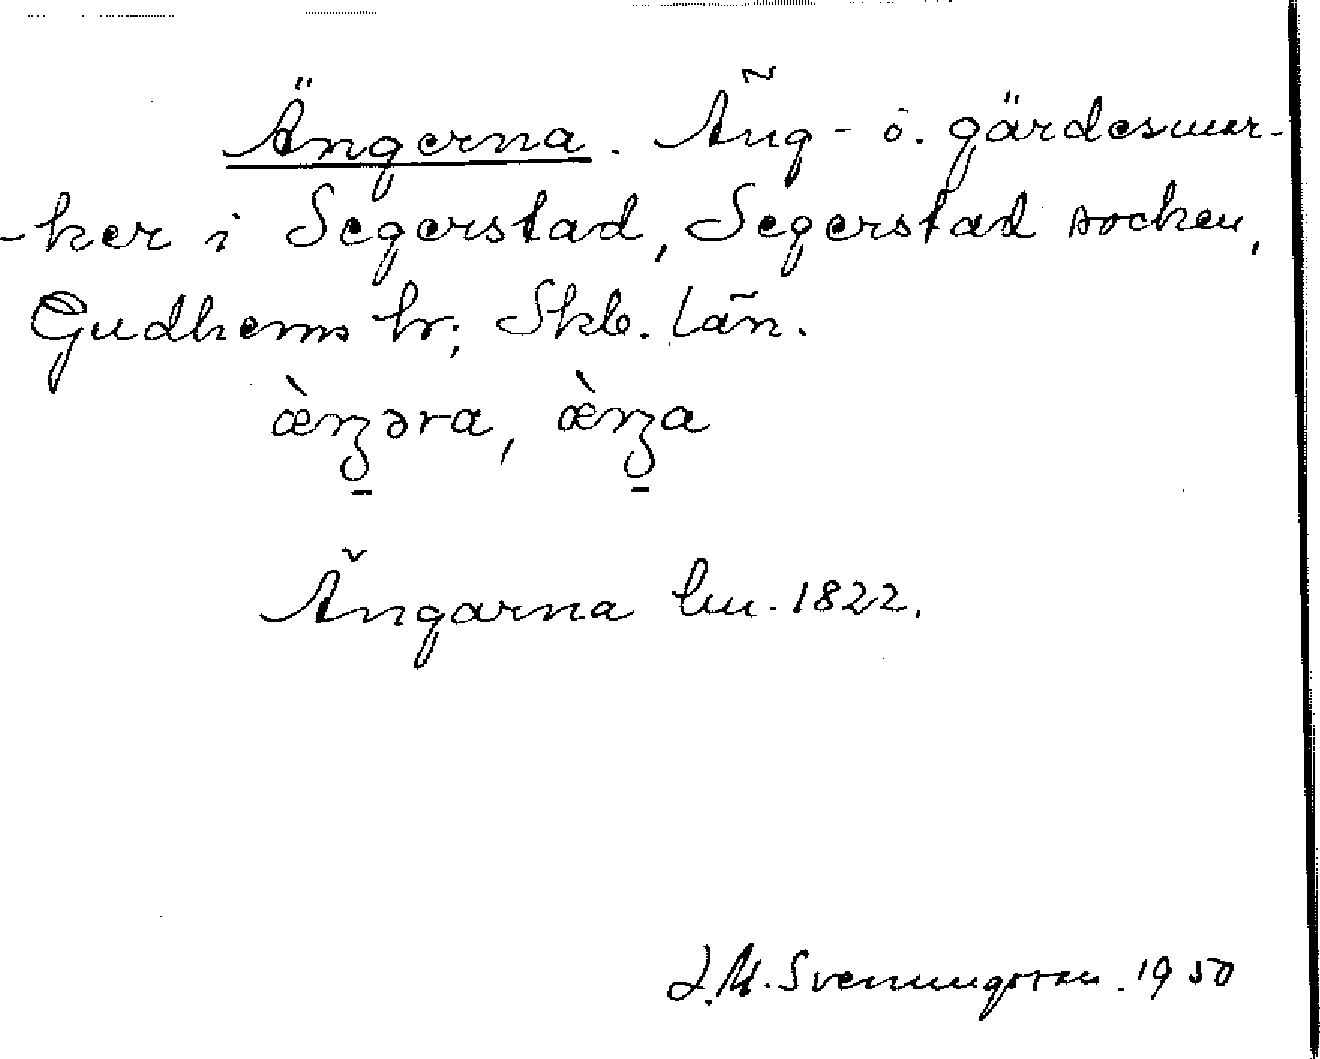 Ängerna. Äng- o. gärdesmar-
-ker i Segerstad, Segerstad socken,
Gudhems hr; Skb. län.
ængəra, ænga
Ängarna lm. 1822.
J.M. Svenungsson. 1950